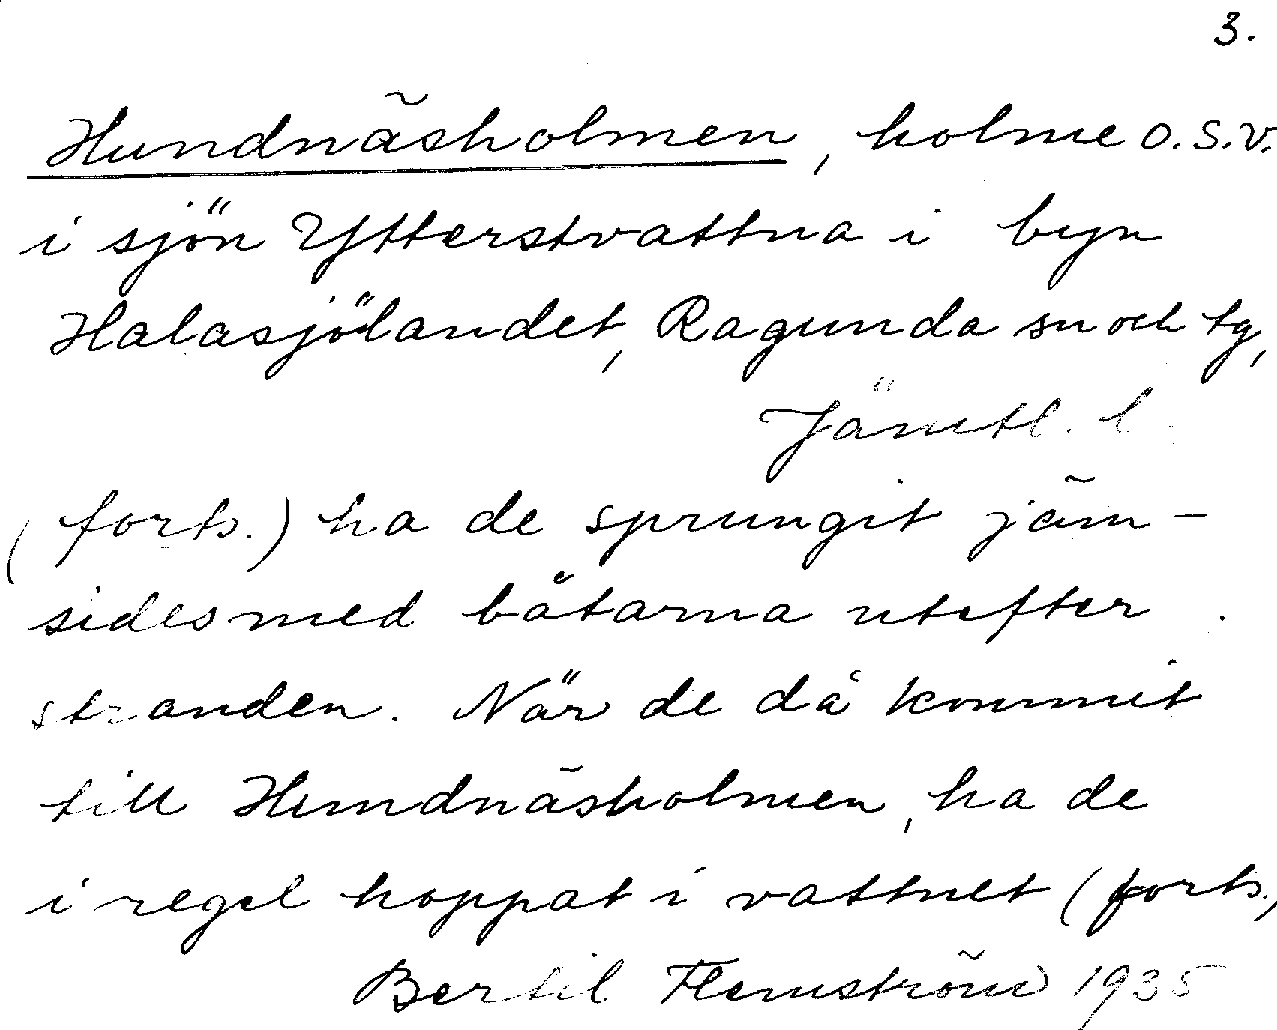 3.
Hundnäsholmen, holme o.s.v.
i sjön Ytterstvattna i byn
Halasjölandet, Ragunda sn och tg,
Jämtl. l.
(forts.) ha de sprungit jäm-
sides med båtarna utefter
stranden. När de då kommit
till Hundnäsholmen, ha de
i regel hoppat i vattnet (forts.,
Bertil Flemström 1935